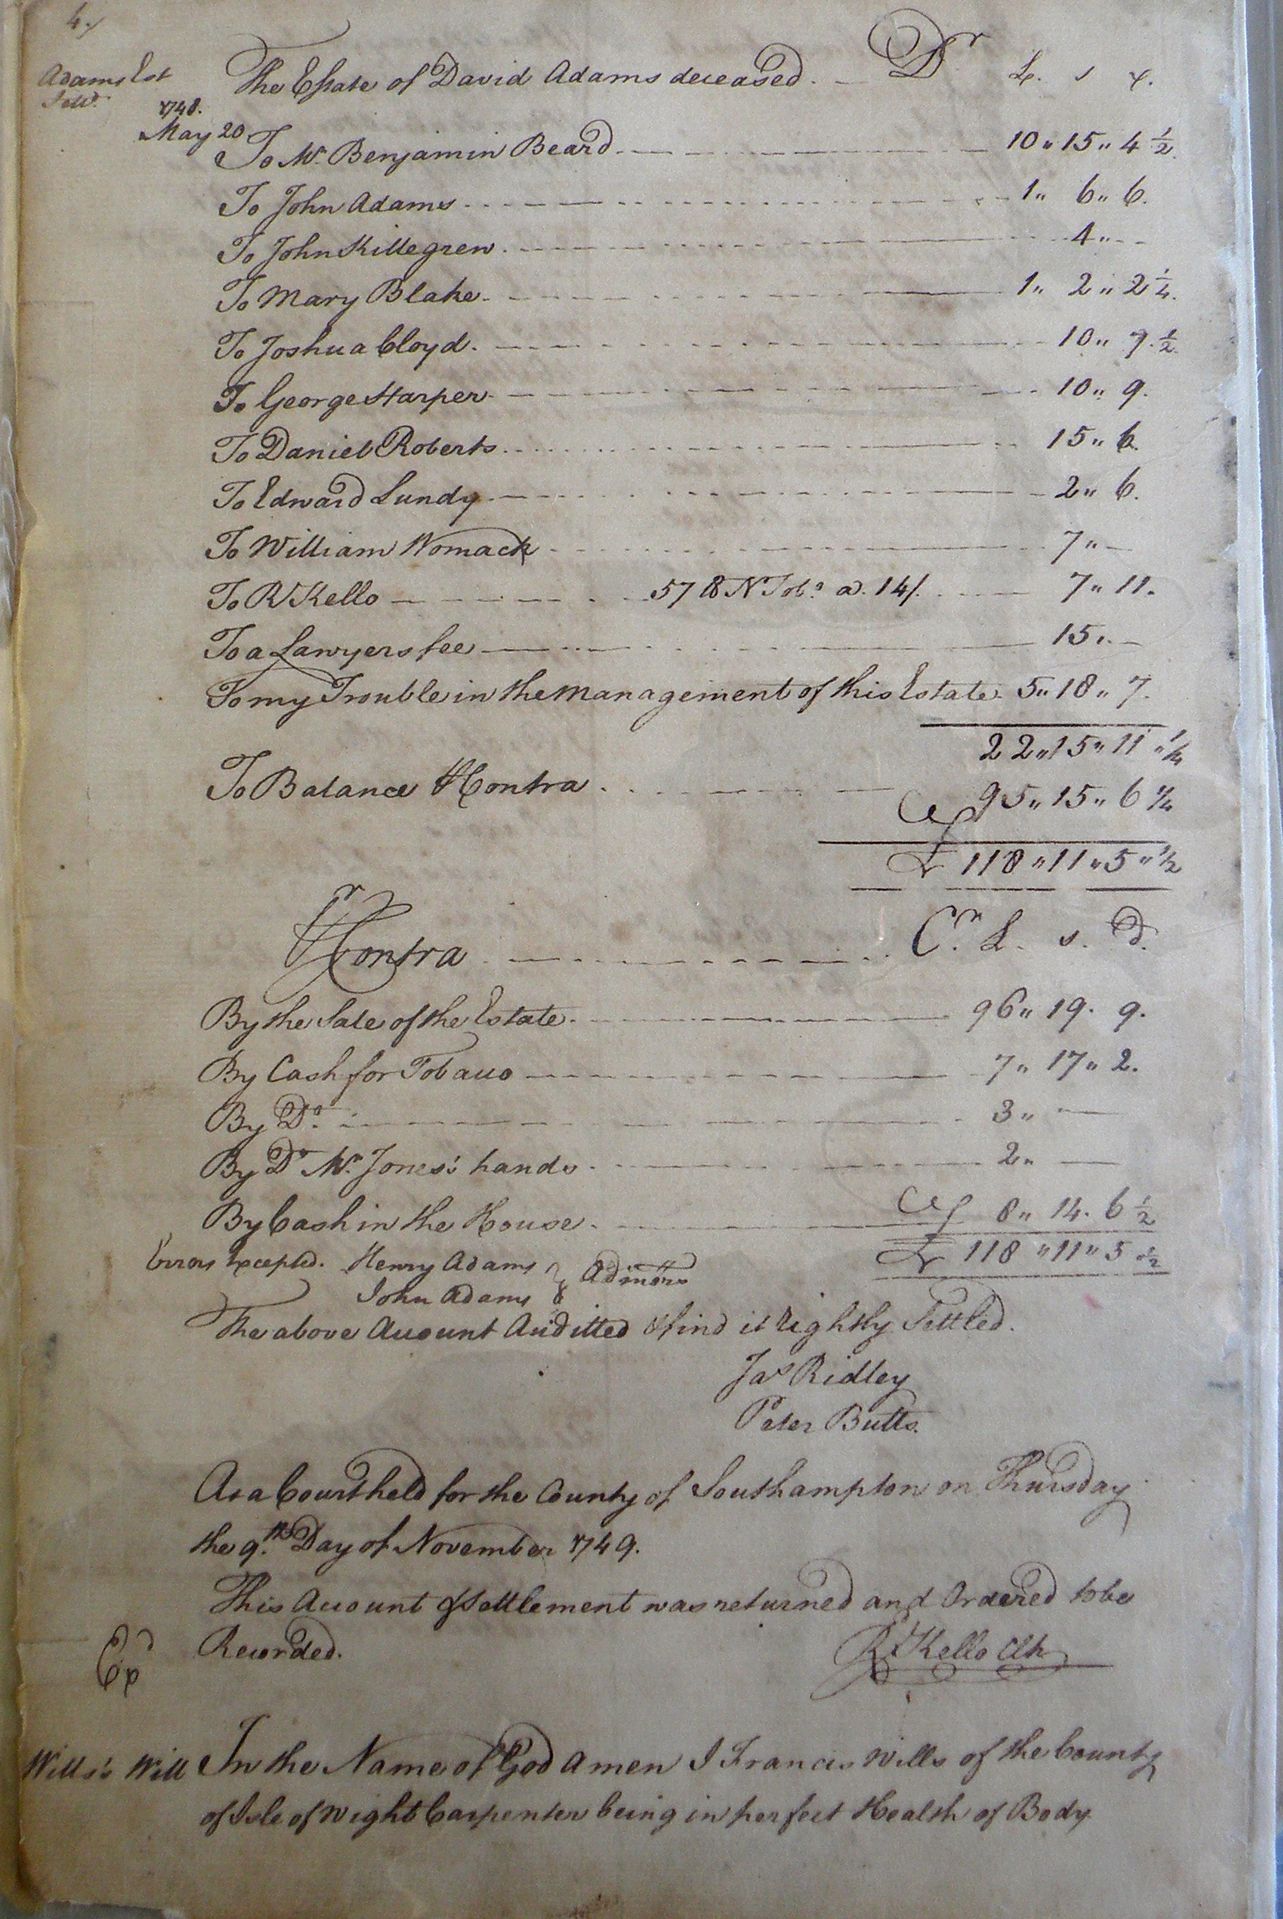 4.
Adams Est
The Estate of David Adams deceased. Dr L. s
1748.
May 20 To Mr. Benjamin Beard 10 " 15 " 4 ½
To John Adams 1 " 6 " 6.
To John Killegrew 4 " -
To Mary Blake 1 " 2 " 2 ¼.
To Joshua Cloyd. 10 " 7 ½
To George Harper 10 " 9.
To Daniel Roberts 15 " 6.
To Edward Lundy 2 " 6.
To William Womack 7 " -
To Rd Kello 57 lb Nt Tobo. a. 14/. 7 " 11.
To a Lawyers fee 15 " -
To my Trouble in the management of this Estate 5 " 18 " 7.
22 " 15 " 11 " ¼
To Balance Contra 95 " 15 " 6 ¼
£ 118 " 11 " 5 " ½
Pr Contra Cr. L. s. d.
By the Sale of the Estate 96 " 19. 9.
By Cash for Tobacco 7 " 17 " 2.
By Do. 3 " -
By Do Mr. Jones's hands 2 " -
By Cash in the House 8 " 14. 6 ½
Errors Excepted. Henry Adams £ 118 " 11 " 5 ½
John Adams } Admors
The above Account Auditted & find it rightly Settled.
Jas Ridley
Peter Butts.
At a Court held for the County of Southampton on Thursday
the 9.th Day of November 1749.
This Account of Settlement was returned and Ordered to be
Recorded. Rd Kello Clk
Exd
Wills's Will In the Name of God Amen I Francis Wills of the County
of Isle of Wight Carpenter being in perfect Health of Body